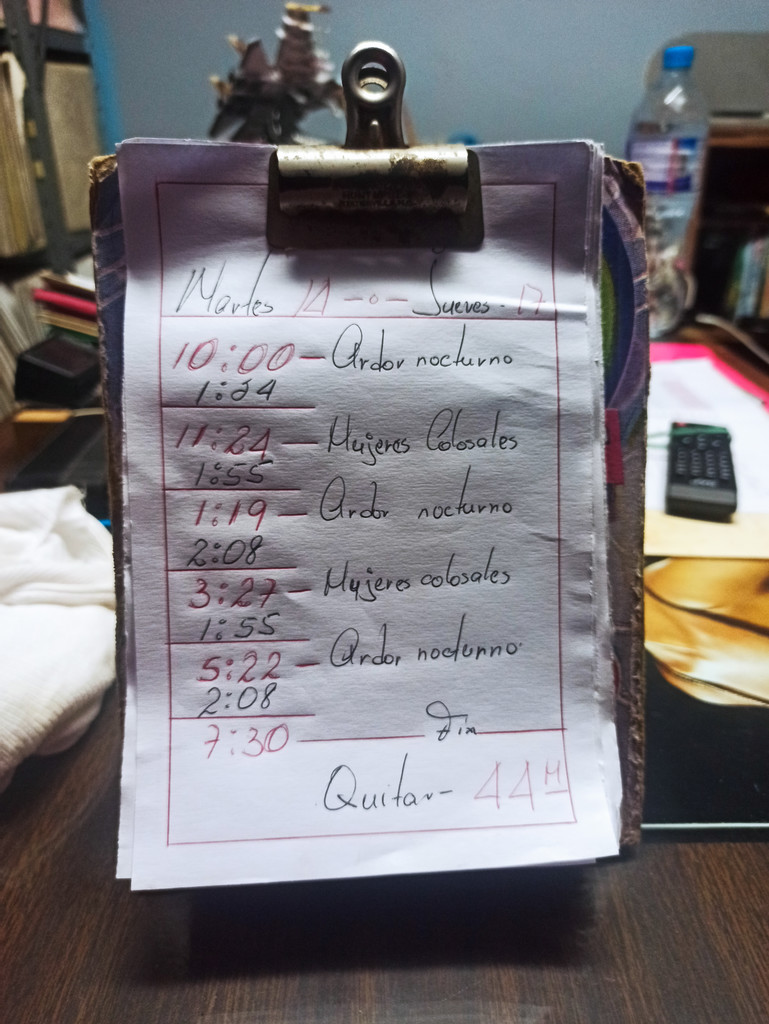 Martes 14 -o- Jueves - 17
10:00 - Ardor nocturno
1:24
11:24 - Mujeres Colosales
1:55
1:19 - Ardor nocturno
2:08
3:27 - Mujeres colosales
1:55
5:22 - Ardor nocturno
2:08
7:30 - Fin
Quitar - 44 M